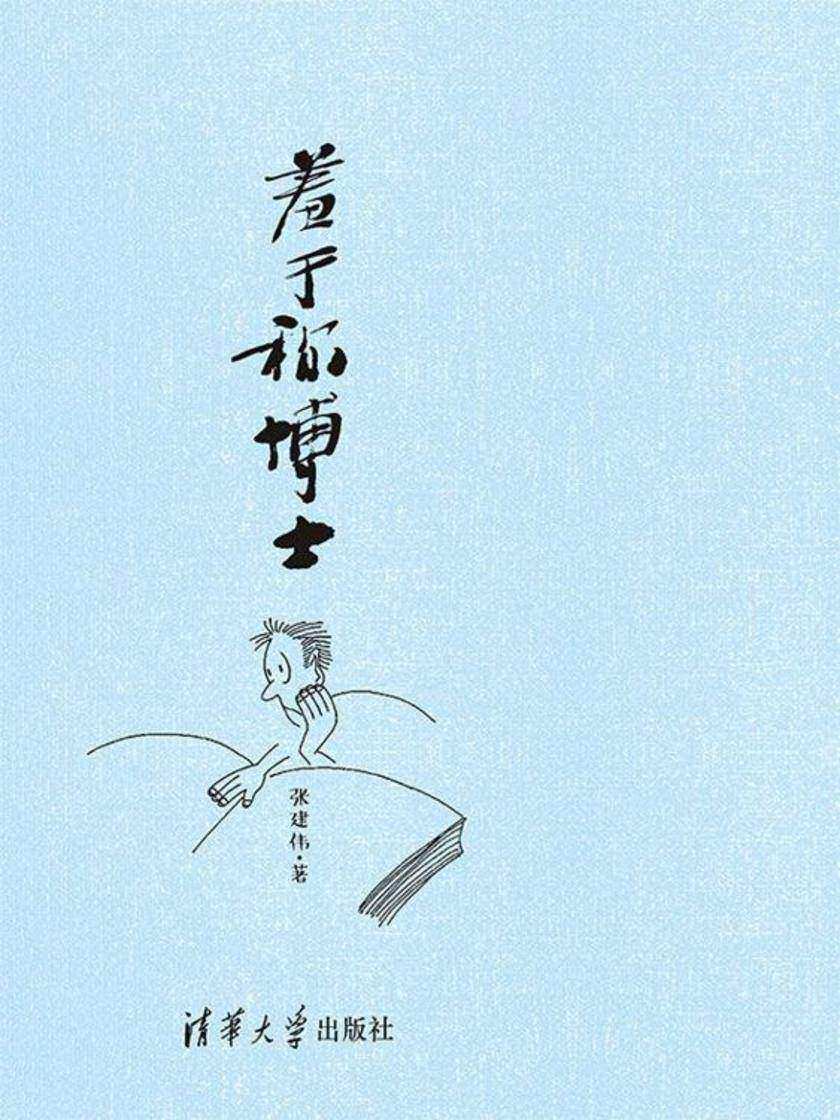 羞于称博士
张建伟·著
清华大学出版社